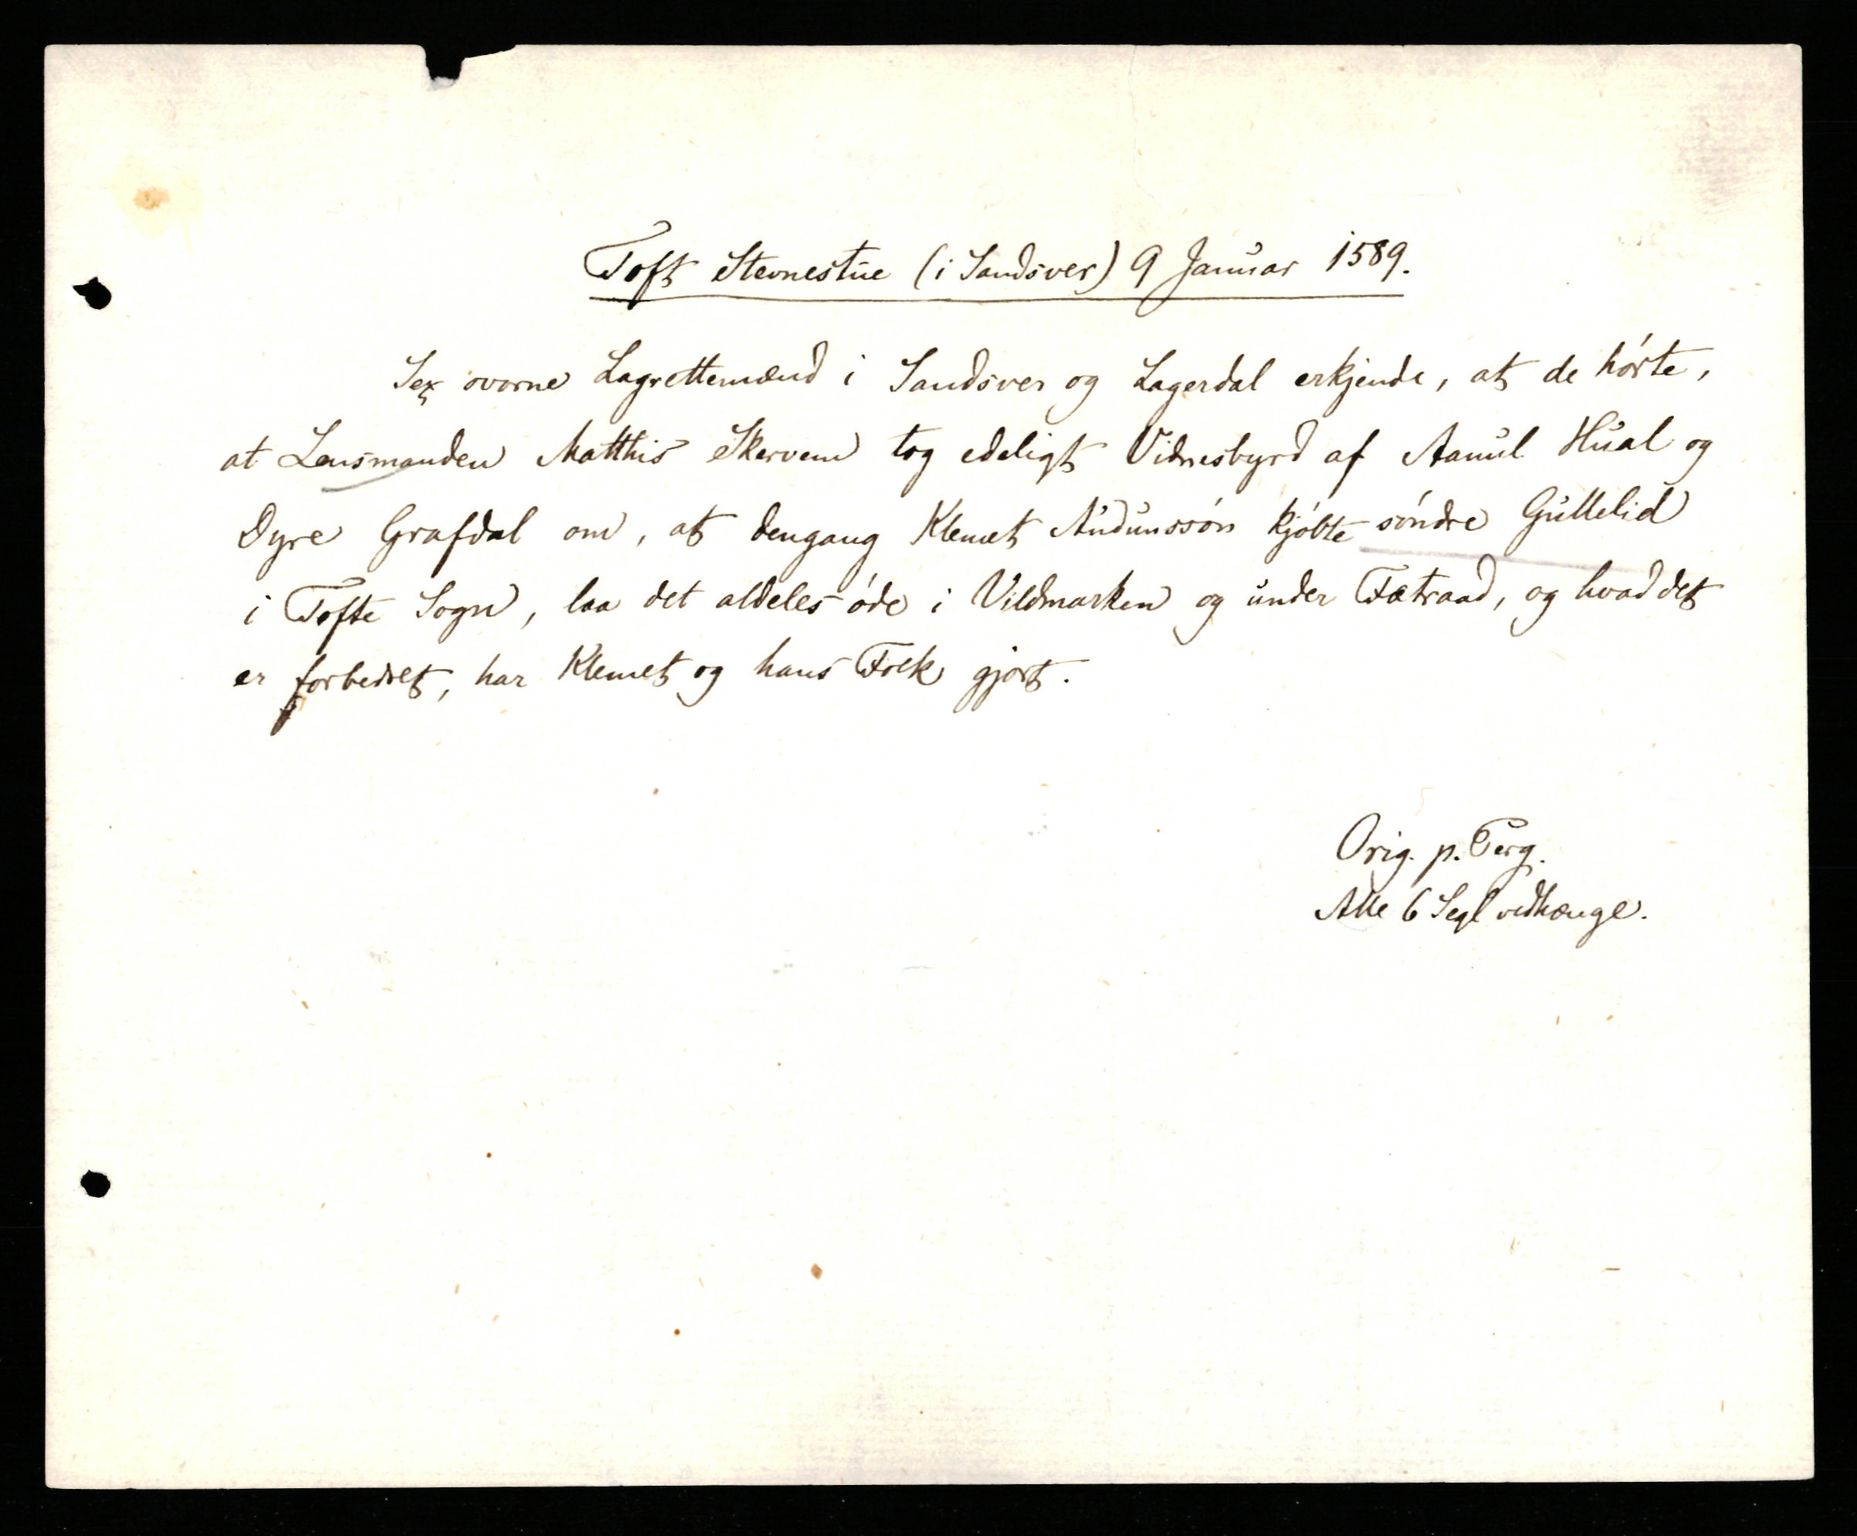 Toft Stevnestue (i Sandsver) 9 Januar 1589.
Sex svorne Lagrettemænd i Sandsver og Lagerdal erkjende, at de hórte,
at Lensmanden Matthis Skervem tog edeligt Vidnesbyrd af Aamul Hual og
Dyre Grafdal om, at dengang Klemet Audunssón kjóbte sóndre Gullelid
i Tofte Sogn, laa det aldeles óde i Vildmarken og under Fætraad, og hvad det
er forbedret, har Klemet og hans Folk gjort.
Orig. p. Perg.
Alle 6 Segl vedhænge.